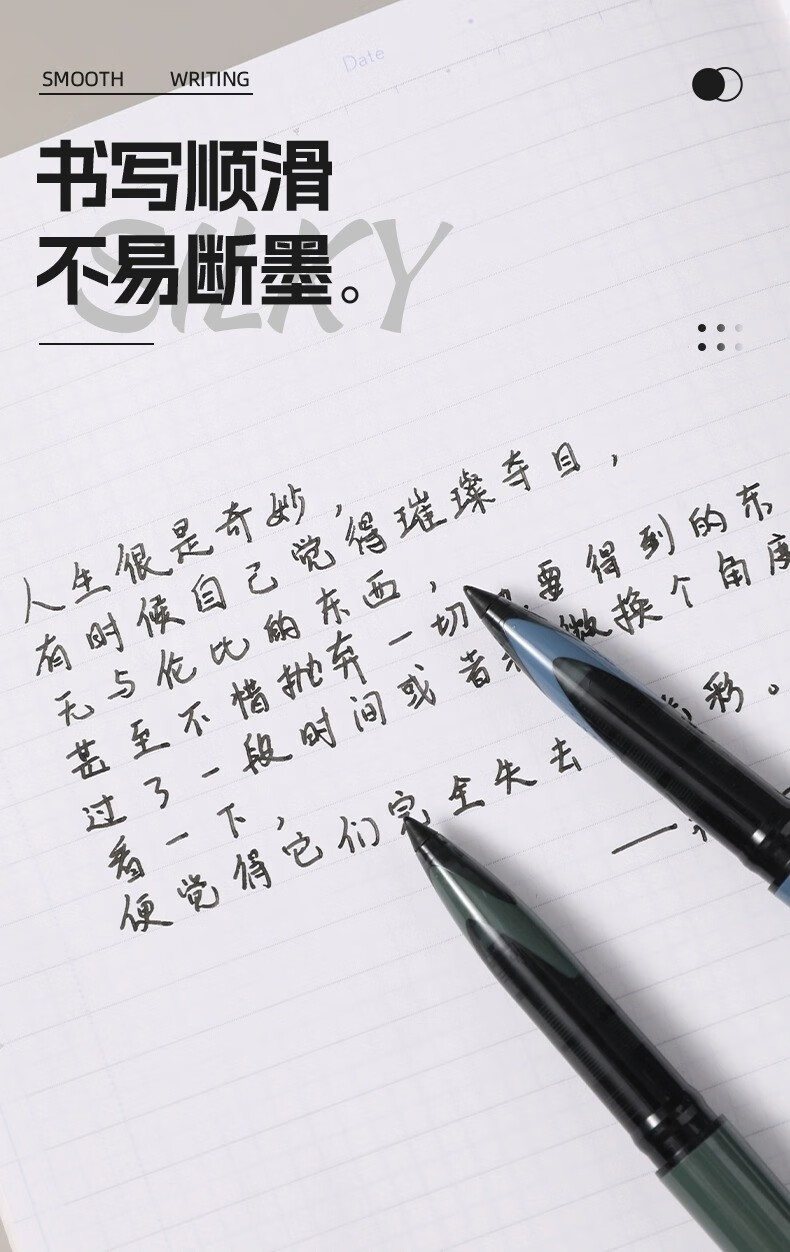 Date
SMOOTH WRITING
书写顺滑
不易断墨。
SILKY
人生很是奇妙，
有时候自己觉得璀璨夺目，
无与伦比的东西，
甚至不惜抛弃一切 要得到的东
过了一段时间或者 做换个角度
看一下，
便觉得它们完全失去 彩。